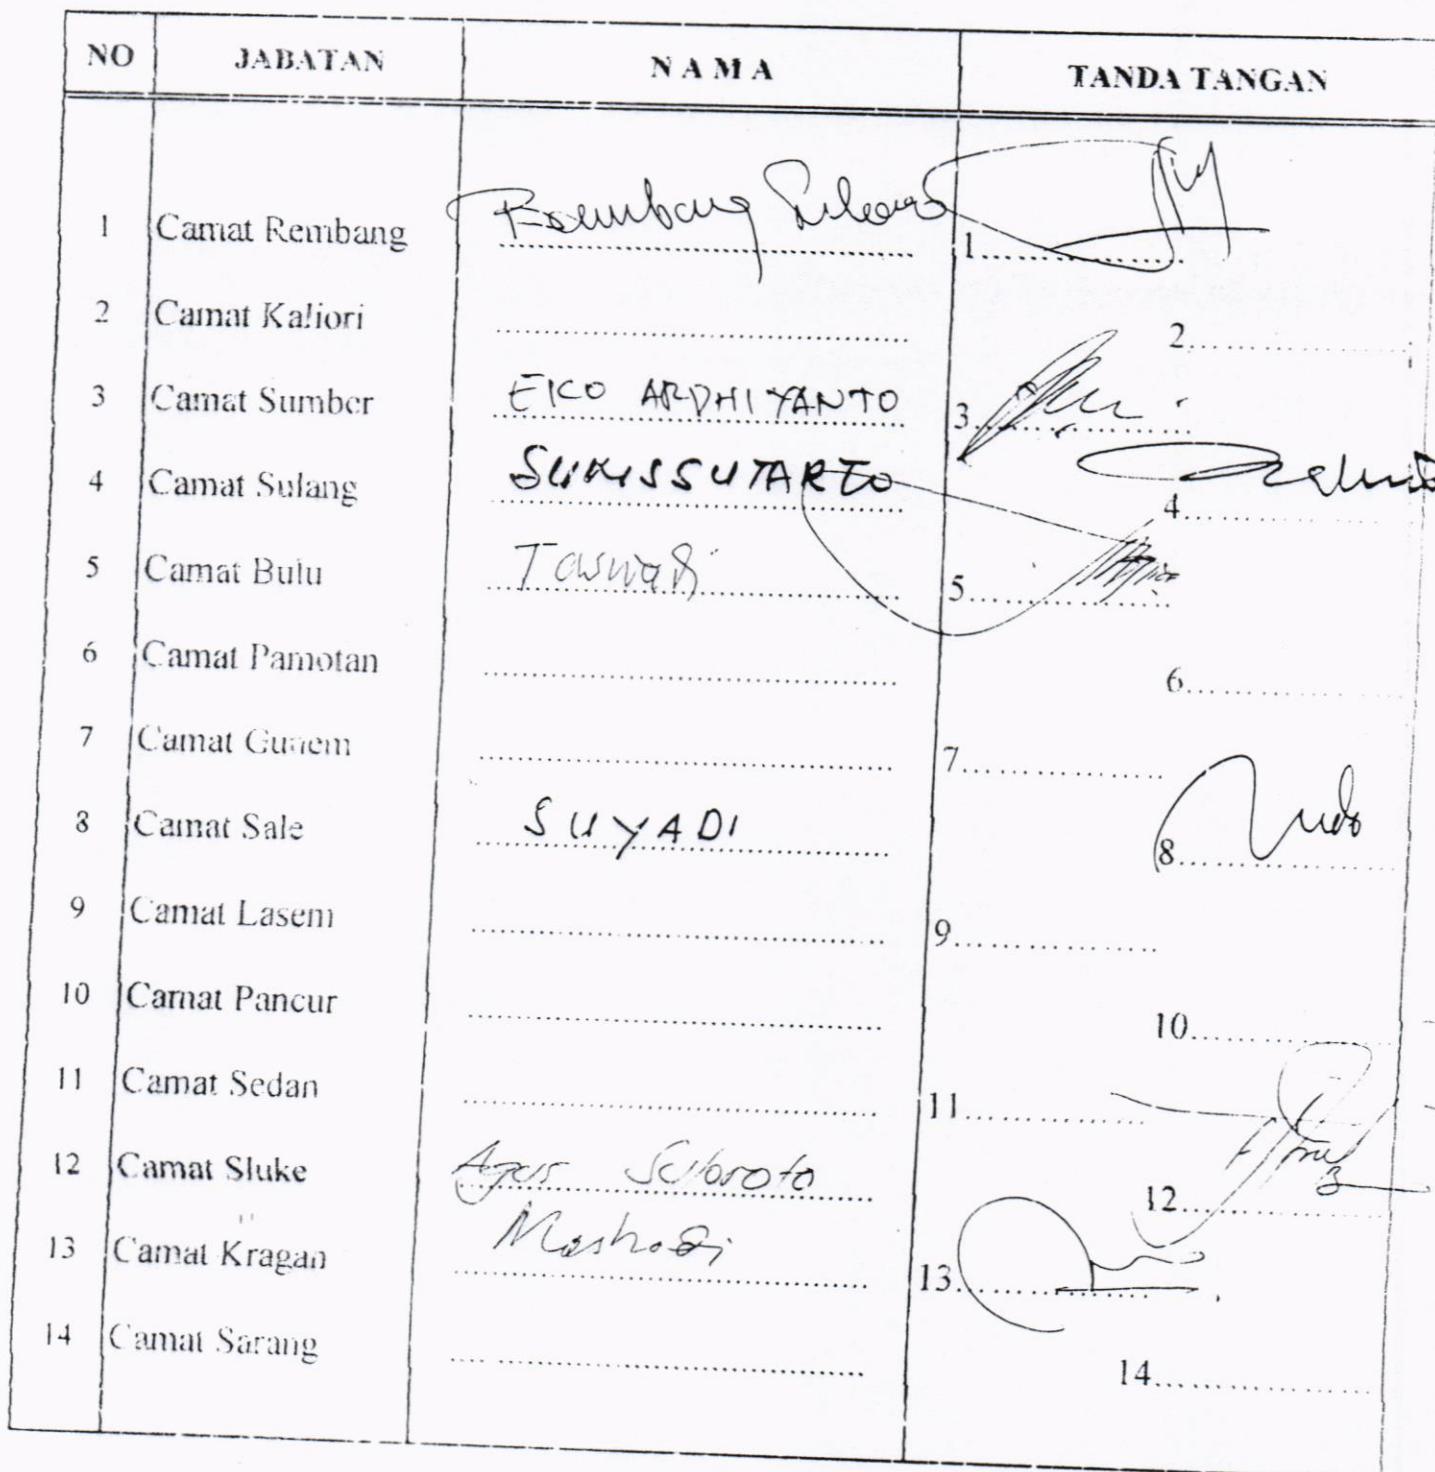 NO JABATAN N A M A TANDA TANGAN
1 Camat Rembang Bambang 1.................
2 Camat Kaliori ................. 2.................
3 Camat Sumber EKO ARDHIYANTO 3.................
4 Camat Sulang 4.................
5 Camat Bulu Taswadi 5.................
6 Camat Pamotan ................. 6.................
7 Camat Gunem ................. 7.................
8 Camat Sale SUYADI 8.................
9 Camat Lasem ................. 9.................
10 Camat Pancur ................. 10.................
11 Camat Sedan ................. 11.................
12 Camat Sluke Agus Subroto 12.................
13 Camat Kragan Mashadi 13.................
14 Camat Sarang ................. 14.................